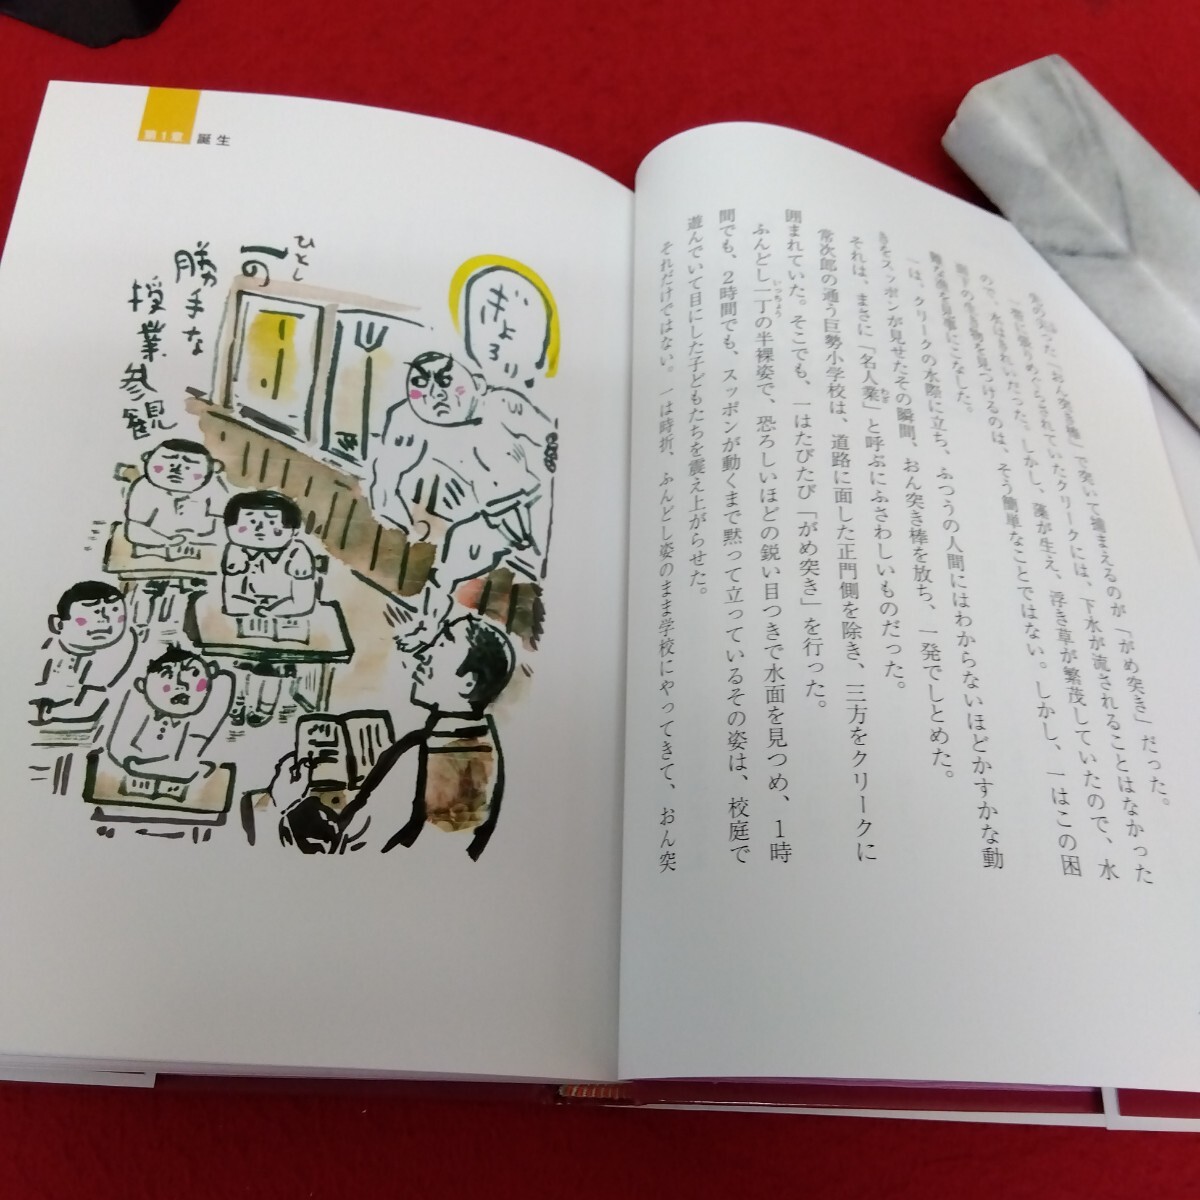 先のあった「おん突き棒」で突いて捕まえるのが「がめ突き」だった。
一帯に張りめぐらされていたクリークには、下水が流されることはなかった
ので、水はきれいだった。しかし、藻が生え、浮き草が繁茂していたので、水
面下の生き物を見つけるのは、そう簡単なことではない。しかし、一はこの困
難な漁を見事にこなした。
一は、クリークの水際に立ち、ふつうの人間にはわからないほどかすかな動
きをスッポンが見せたその瞬間、おん突き棒を放ち、一発でしとめた。
それは、まさに「名人業」と呼ぶにふさわしいものだった。
わざ
常次郎の通う巨勢小学校は、道路に面した正門側を除き、三方をクリークに
囲まれていた。そこでも、一はたびたび「がめ突き」を行った。
ふんどし一丁の半裸姿で、恐ろしいほどの鋭い目つきで水面を見つめ、1時
いっちょう
間でも、2時間でも、スッポンが動くまで黙って立っているその姿は、校庭で
遊んでいて目にした子どもたちを震え上がらせた。
それだけではない。一は時折、ふんどし姿のまま学校にやってきて、おん突
第1章 誕生
ぎょろり
ひとし
一の
勝手な
授業参観